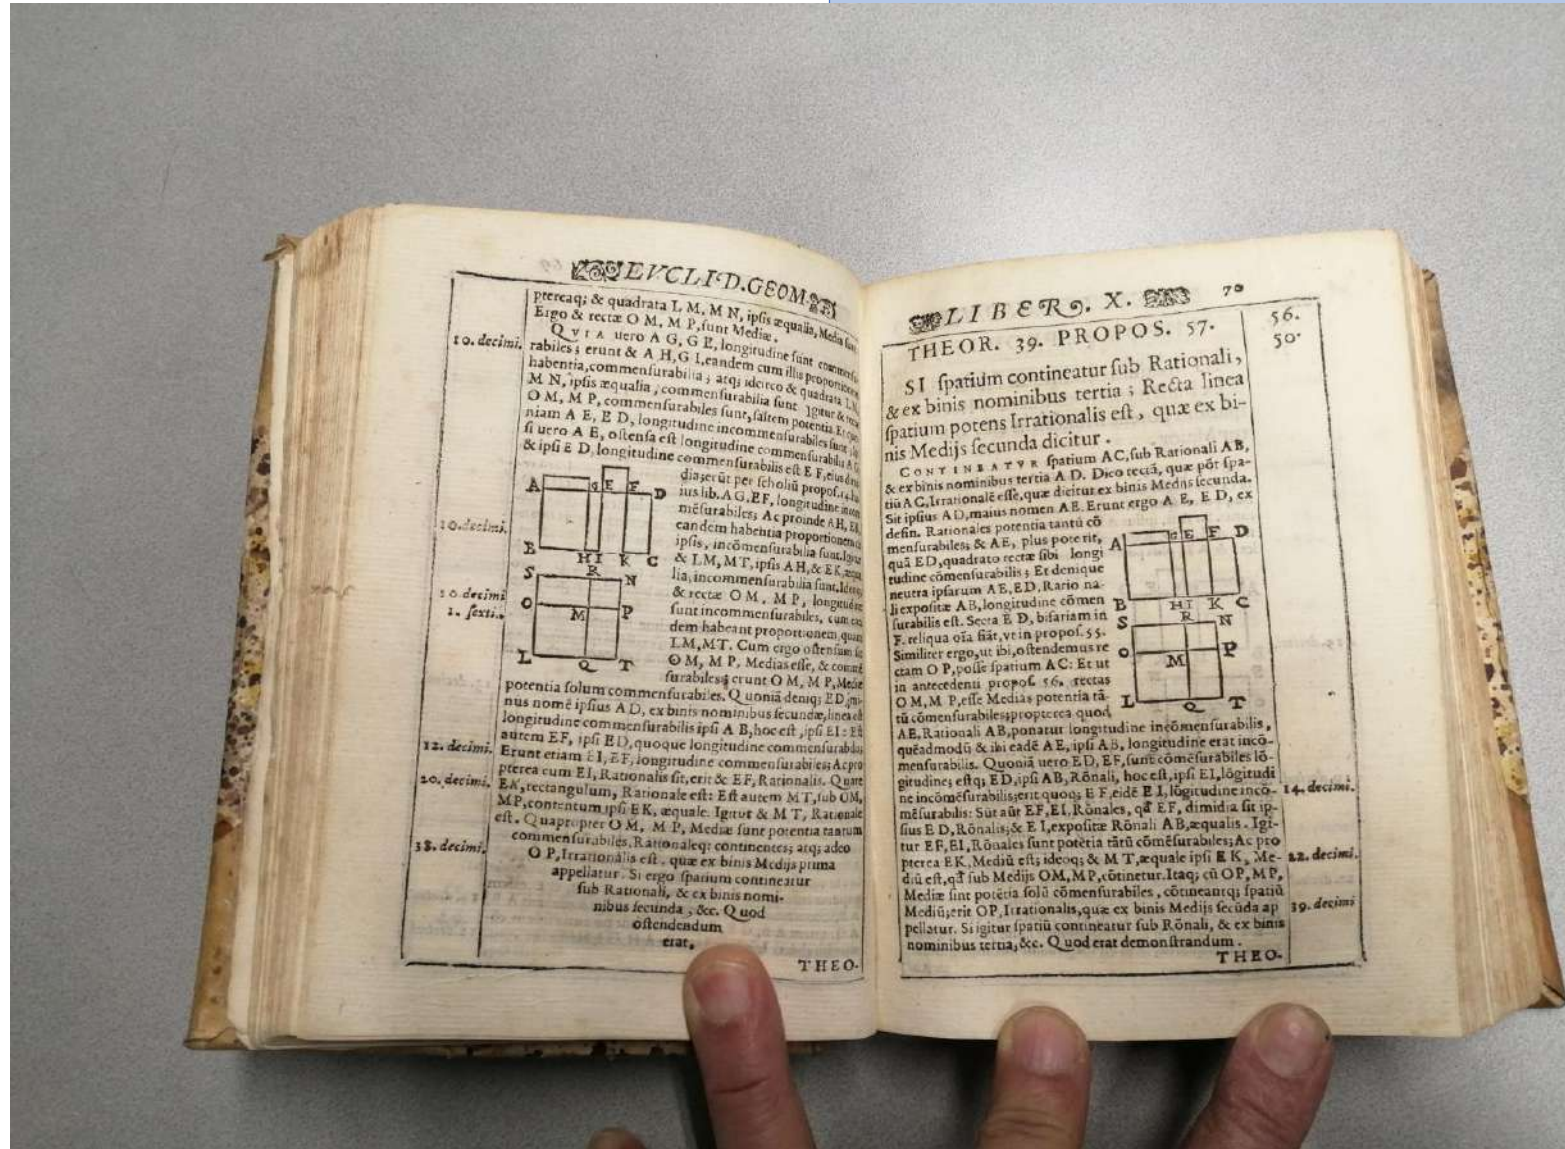 EVCLID. GEOM.
ptereaq; & quadrata L M, M N, ipsis æqualia, Media sunt
Ergo & rectæ O M, M P, sunt Mediæ.
10. decimi.
QVIA uero A G, G E, longitudine sunt
rabiles; erunt & A H, G I, eandem cum illis
habentia, commensurabilia; atq; idcirco & quadrata L M,
M N, ipsis æqualia, commensurabilia sunt. Igitur & rectæ
O M, M P, commensurabiles sunt, saltem potentia. Et quo
niam A E, E D, longitudine incommensurabiles sunt;
si uero A E, ostensa est longitudine commensurabilis A G
& ipsi E D, longitudine commensurabilis est E F, eius dimi
dia; erūt per scholiū propos. 14. hu
ius lib. A G, E F, longitudine incom
mēsurabiles; Ac proinde A H, E K,
10. decimi.
eandem habentia proportionem cū
ipsis, incōmensurabilia sunt. Igitur
& LM, MT, ipsis A H, & EK, æqua
lia, incommensurabilia sunt. Ideoq;
10. decimi
& rectæ O M, M P, longitudine
1. sexti.
sunt incommensurabiles, cum ean
dem habeant proportionem, quam
LM, MT. Cum ergo ostensum sit
O M, M P, Medias esse, & commē
surabiles; erunt O M, M P, Mediæ
A G E F D
B H I K C
S R N
O M P
L Q T
potentia solum commensurabiles. Quoniā deniq; ED, mi-
nus nomē ipsius A D, ex binis nominibus secundæ, linea est
longitudine commensurabilis ipsi A B, hoc est, ipsi EI: Est
autem EF, ipsi ED, quoque longitudine commensurabilis
12. decimi.
Erunt etiam EI, EF, longitudine commensurabiles; Ac pro
pterea cum EI, Rationalis sit, erit & EF, Rationalis. Quare
20. decimi.
EK, rectangulum, Rationale est: Est autem M T, sub OM,
MP, contentum ipsi EK, æquale. Igitur & M T, Rationale
est. Quapropter O M, M P, Mediæ sunt potentia tantum
commensurabiles, Rationaleq; continentes; atq; adeo
38. decimi.
O P, Irrationalis est, quæ ex binis Medijs prima
appellatur. Si ergo spatium contineatur
sub Rationali, & ex binis nomi-
nibus secunda, &c. Quod
ostendendum
erat.
THEO-
LIBER. X. 70
THEOR. 39. PROPOS. 57.
56.
50.
SI spatium contineatur sub Rationali,
& ex binis nominibus tertia; Recta linea
spatium potens Irrationalis est, quæ ex bi-
nis Medijs secunda dicitur.
CONTINEATVR spatium AC, sub Rationali AB,
& ex binis nominibus tertia A D. Dico rectā, quæ pōt spa-
tiū A C, Irrationalē esse, quæ dicitur ex binis Medijs secunda.
Sit ipsius A D, maius nomen AE. Erunt ergo A E, E D, ex
defin. Rationales potentia tantū cō
mensurabiles; & AE, plus poterit,
quā ED, quadrato rectæ sibi longi
tudine cōmensurabilis; Et denique
neutra ipsarum AE, ED, Ratio na-
li expositæ AB, longitudine cōmen
surabilis est. Secta E D, bifariam in
F. reliqua oīa fiāt, vt in propos. 55.
Similiter ergo, ut ibi, ostendemus re
ctam O P, posse spatium AC: Et ut
in antecedenti propos. 56. rectas
O M, M P, esse Medias potentia tā-
tū cōmensurabiles; propterea quod
A G E F D
B H I K C
S R N
O M P
L Q T
AE, Rationali AB, ponatur longitudine incōmensurabilis,
quēadmodū & ibi eadē AE, ipsi AB, longitudine erat incō-
mensurabilis. Quoniā uero ED, EF, sunt cōmensurabiles lō-
gitudine; estq; ED, ipsi AB, Rōnali, hoc est, ipsi EI, lōgitudi
14. decimi.
ne incōmēsurabilis; erit quoq; E F, eidē E I, lōgitudine incō-
mēsurabilis: Sūt aūt EF, EI, Rōnales, qđ EF, dimidia sit ip-
sius E D, Rōnalis; & E I, expositæ Rōnali AB, æqualis. Igi-
tur EF, EI, Rōnales sunt potētia tātū cōmēsurabiles; Ac pro
22. decimi.
pterea EK, Mediū est; ideoq; & M T, æquale ipsi E K, Me-
diū est, qđ sub Medijs OM, MP, cōtinetur. Itaq; cū OP, MP,
Mediæ sint potētia solū cōmensurabiles, cōtineantq; spatiū
39. decimi
Mediū; erit OP, Irrationalis, quæ ex binis Medijs secūda ap
pellatur. Si igitur spatiū contineatur sub Rōnali, & ex binis
nominibus tertia, &c. Quod erat demonstrandum.
THEO-